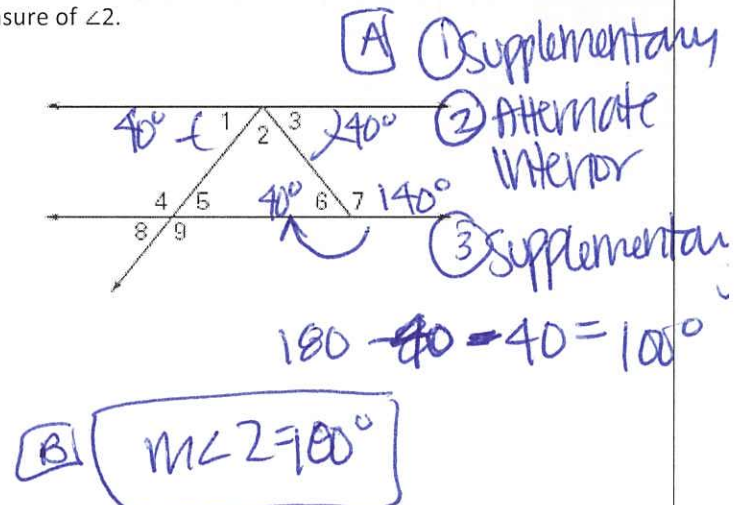 sure of ∠2.
A ① supplementary
② Alternate
Interior
③ supplementa
40° 1 2 3 40°
4 5 40° 6 7 140°
8 9
180 - 40 - 40 = 100°
B m∠2=100°